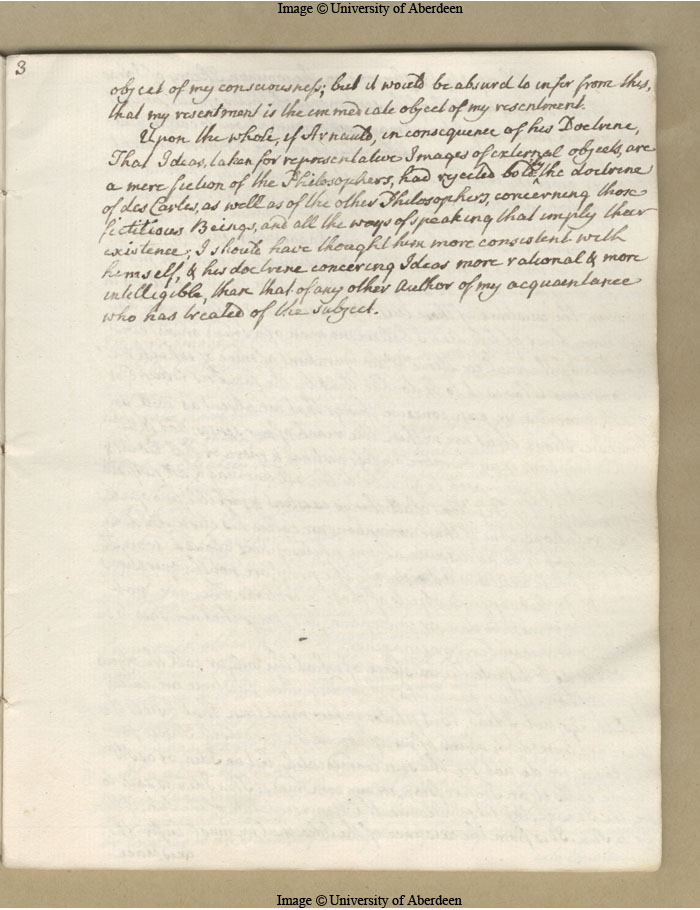 Image © University of Aberdeen
3
object of my consciousness; but it would be absurd to infer from this,
that my resentment is the immediate object of my resentment.
Upon the whole, if Arnauld, in consequence of his Doctrine,
That Ideas, taken for representative Images of external objects, are
a mere fiction of the Philosophers, had rejected both the doctrine
of des Cartes, as well as of the other Philosophers, concerning those
fictitious Beings, and all the ways of speaking that imply their
existence; I should have thought him more consistent with
himself, & his doctrine concering Ideas more rational & more
intelligible, than that of any other Author of my acquaintance
who has treated of the subject.
Image © University of Aberdeen